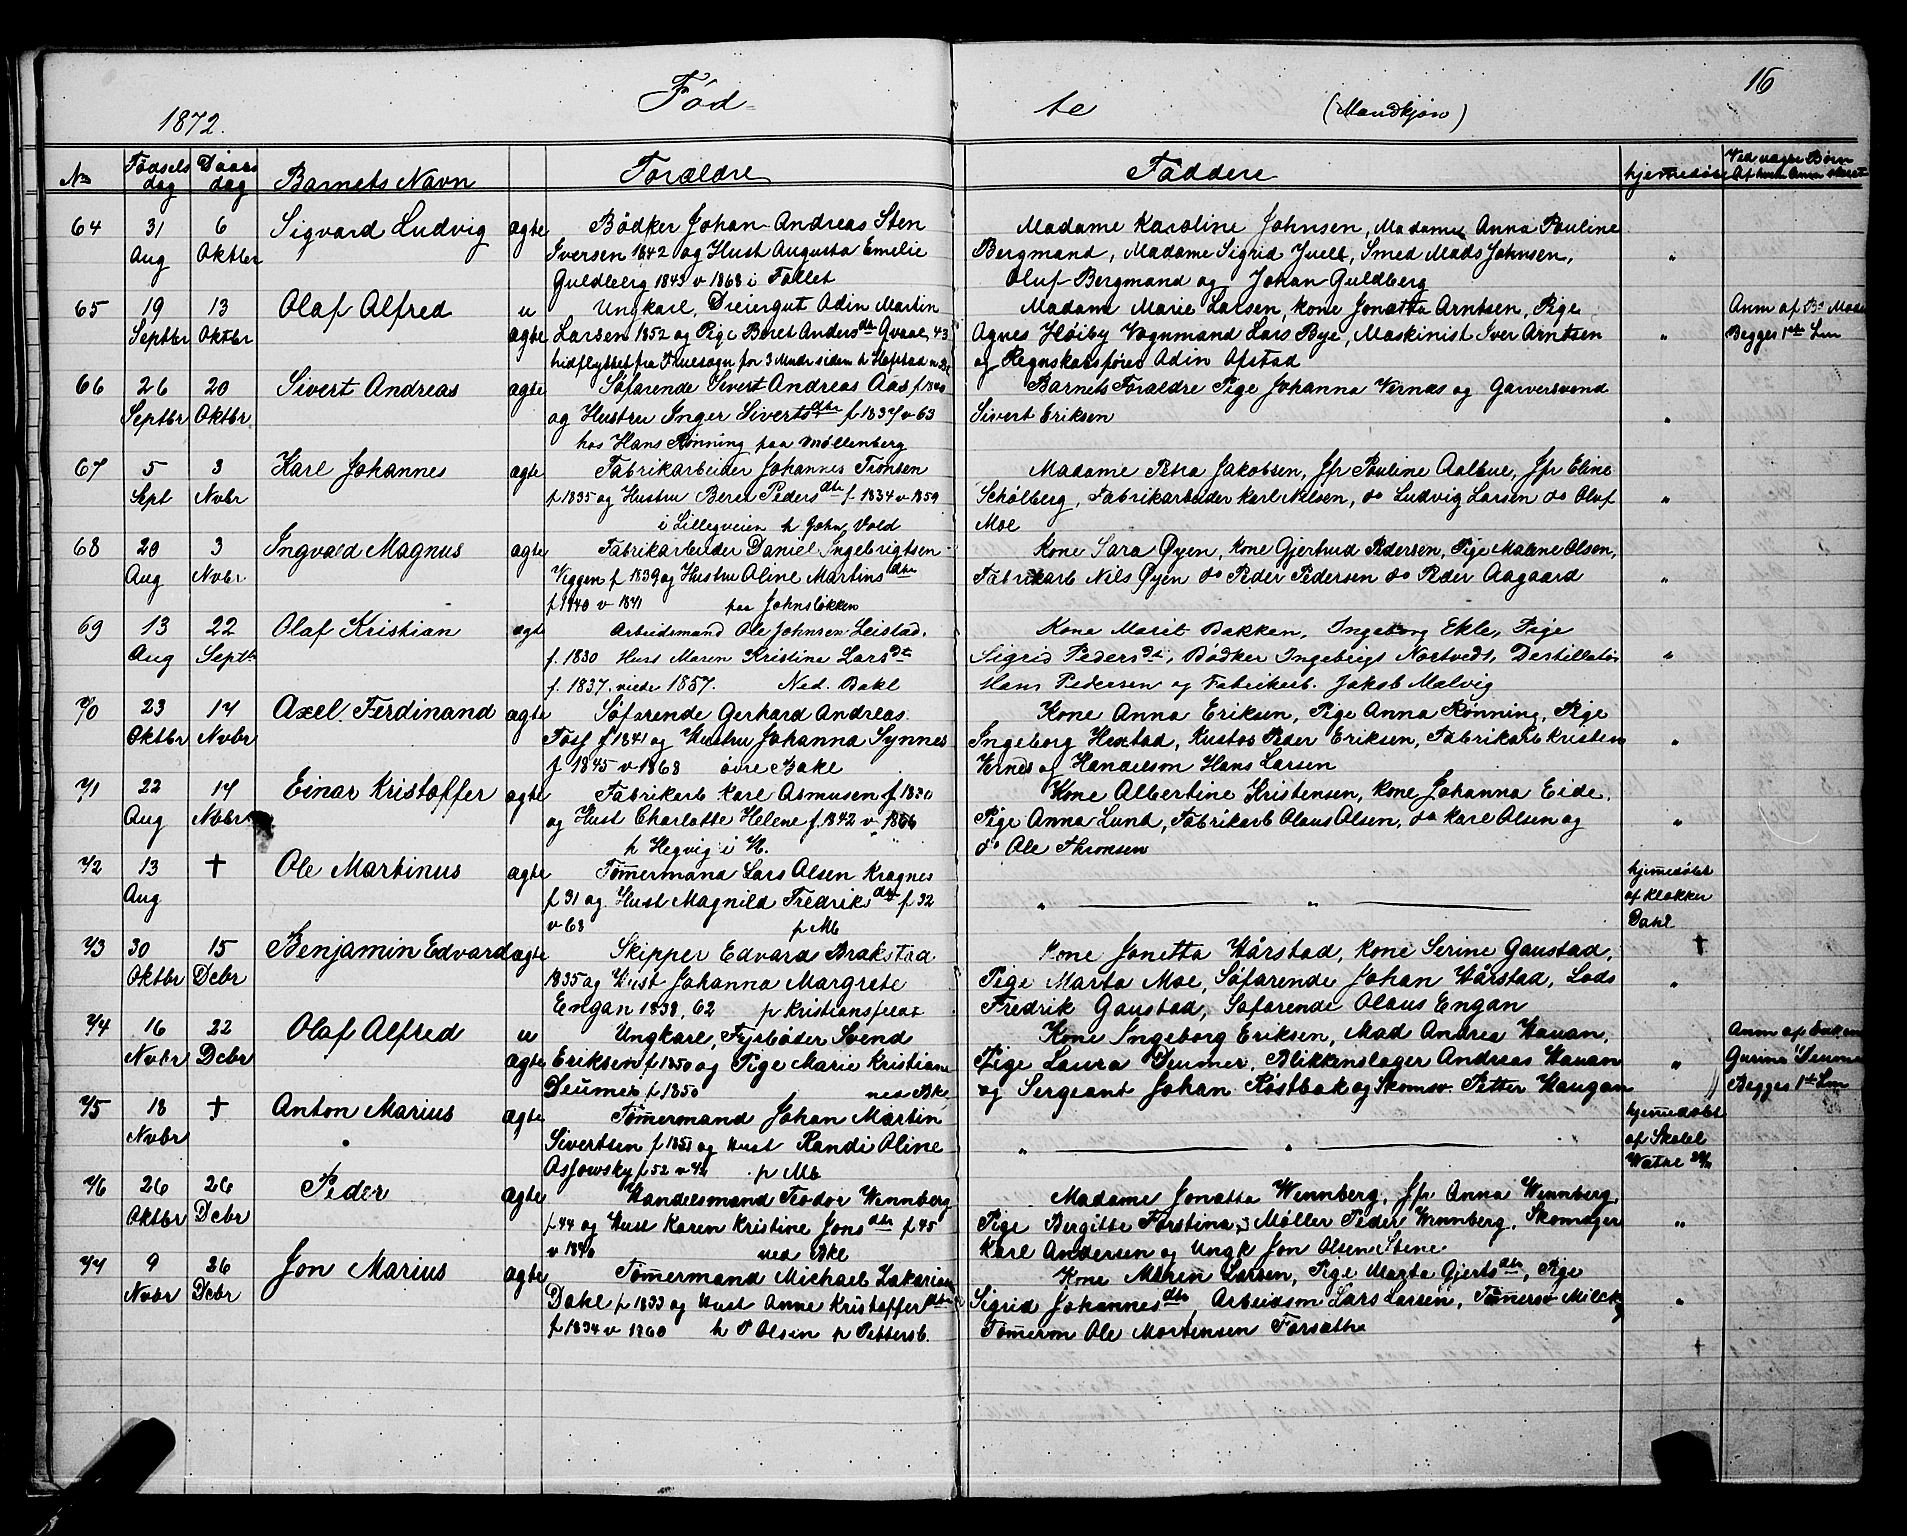 16
Fød te (Mandkjøn)
1872.
No Fødsels dag Daabs dag Barnets Navn Forældre Faddere hjemmedøbt Ved uægte Børn
64 31 Aug 6 Oktbr Sigvard Ludvig ægte Bødker Johan Andreas Sten
Iversen 1842 og Hust Augusta Emelie
Guldberg 1843 v 1868 i Fallet
Madame Karoline Johnsen, Madame Anna Pauline
Bergmand, Madame Sigrid Juell, Smed Mads Johnsen,
Oluf Bergmand og Johan Guldberg
"
65 19 Septbr 13 Oktbr Olaf Alfred u ægte Ungkarl, Dreiergut Adin Martin
Larsen 1852 og Pige Beret Andersdtr Qvaal, 43
hidflyttet fra Fluesogn for 3 Mndr siden h Hofstad
Madam Marie Larsen, kone Jonetta Arntsen, Pige
Agnes Høiby Vognmand Lars Bye, Maskinist Iver Arntsen
og Regnskabsfører Adin Ofstad
"
Anm af
Begges 1ste Lm
66 26 Septbr 20 Oktbr Sivert Andreas ægte Søfarende Sivert Andreas Aas f 1840
og Hustru Inger Sivertsdtr f 1837 v 63
hos Hans Rønning paa Møllenberg
Barnets Forældre Pige Johanna Vernæs og Garversvend
Sivert Eriksen
"
67 5 Sept 3 Nvbr Karl Johannes ægte Fabrikarbeider Johannes Tronsen
f 1835 og Hustru Beret Pedersdtr f. 1834 v 1859
i Lillegveien h John Vold
Madame Petra Jakobsen, Jfr Pauline Aalbue, Jfr Eline
Schølberg, Fabrikarbeider Karl Nilsen, do Ludvig Larsen do Oluf
Moe
"
68 20 Aug 3 Nvbr Ingvald Magnus ægte Fabrikarbeider Daniel Ingebrigtsen
Viggen f 1839 og Hustru Oline Martinsdtr
f 1840 v 1841 paa Johnsløkken
Kone Sara Øyen, Kone Gjertrud Pedersen, Pige Malene Olsen,
Fabrikarb Nils Øyen do Peder Pedersen do Peder Aagaard
"
69 13 Aug 22 Septb Olaf Kristian ægte Arbeidsmand Ole Johnsen Leistad,
f. 1830 Hust Maren Kristina Larsdt
f. 1837. viede 1857. Ned. Bakl
Kone Marit Bakken, Ingeborg Ekle, Pige
Sigrid Pedersdt, Bødker Ingebrigt Nortvedt, Destillatør
Hans Pedersen og Fabrikarb. Jakob Malvig
"
70 23 Oktbr 17 Nvbr Axel Ferdinand ægte Søfarende Gerhard Andreas
Toss f 1841 og Hustru Johanna Synnes
f 1845 v 1868 øvre Bakl
Kone Anna Eriksen, Pige Anna Rønning, Pige
Ingeborg Hestad, Kustos Peder Eriksen, Fabrikarb Kristen
Vernes og Handelsm Hans Larsen
"
71 22 Aug 17 Nvbr Einar Kristoffer ægte Fabrikarb Karl Asmusen f 1830
og Hust Charlotte Helene f. 1842 v 1866
h Hegvig i
Kone Albertine Kristensen, Kone Johanna Eide.
Pige Anna Lund, Fabrikarb Olaus Olsen, do Karl Olsen og
do Ole Thronsen
"
72 13 Aug † Ole Martinus ægte Tømermand Lars Olsen Kragnes
f 31 og Hust Magnild Fredriksdtr f 32
v 63 p Mb
" "
hjemmedøbt
af Klokker
Dahl
73 30 Oktbr 15 Dcbr Benjamin Edvard ægte Skipper Edvard Brakstad
1835 og Hust Johanna Margrete
Engan 1838, 62 p Kristiansfeldt
Kone Jonetta Hårstad, Kone Serine Gaustad,
Pige Marta Moe, Søfarende Johan Hårstad, Lods
Fredrik Gaustad, Søfarende Olaus Engan
†
"
74 16 Nvbr 22 Dcbr Olaf Alfred u ægte Ungkarl, Fyrbøder Svend
Eriksen f 1850 og Pige Marie Kristiane
Deumer f 1850 ned Bk
Kone Ingeborg Eriksen, Mad Andrea Hauan,
Pige Laura Deumer, Blikkenslager Andreas Hauan
og Sergeant Johan Rostbak og Skomsv. Petter Haugan
"
Anm af Enken
Gurina Deumer
Begges 1ste Lm
75 18 Nvbr † Anton Marius ægte Tømermand Johan Martin
Sivertsen f 1851 og Hust Randi Oline
Asfowsky f 52 v 72 p Mb
" "
hjemmedøbt
af Skolel
Wæhre
76 26 Oktbr 26 Dcbr Peder ægte Handelsmand Teodor Wennberg
f 44 og Hust Karen Kristine Jonsdtr f 45
ved Bkl
Madame Jonetta Wennberg, Jfr Anna Wennberg,
Pige Bergitte Forstina, Møller Peder Wennberg, Skomager
Karl Andersen og Ungk Jon Olsen Stene
"
77 9 Nvbr 26 Dcbr Jon Marius ægte Tømermand Michael Zakarias
Dahl f 1833 og Hust Anne Kristofferdtr
f 1834 v 1860 h P Olsen p Pettersb.
Kone Maren Larsen, Pige Marta Gjertsdtr, Pige
Sigrid Johannesdtr, Arbeidsm Lars Larsen, Tømersv
Tømerm Ole Mortensen Forsæth
"
†